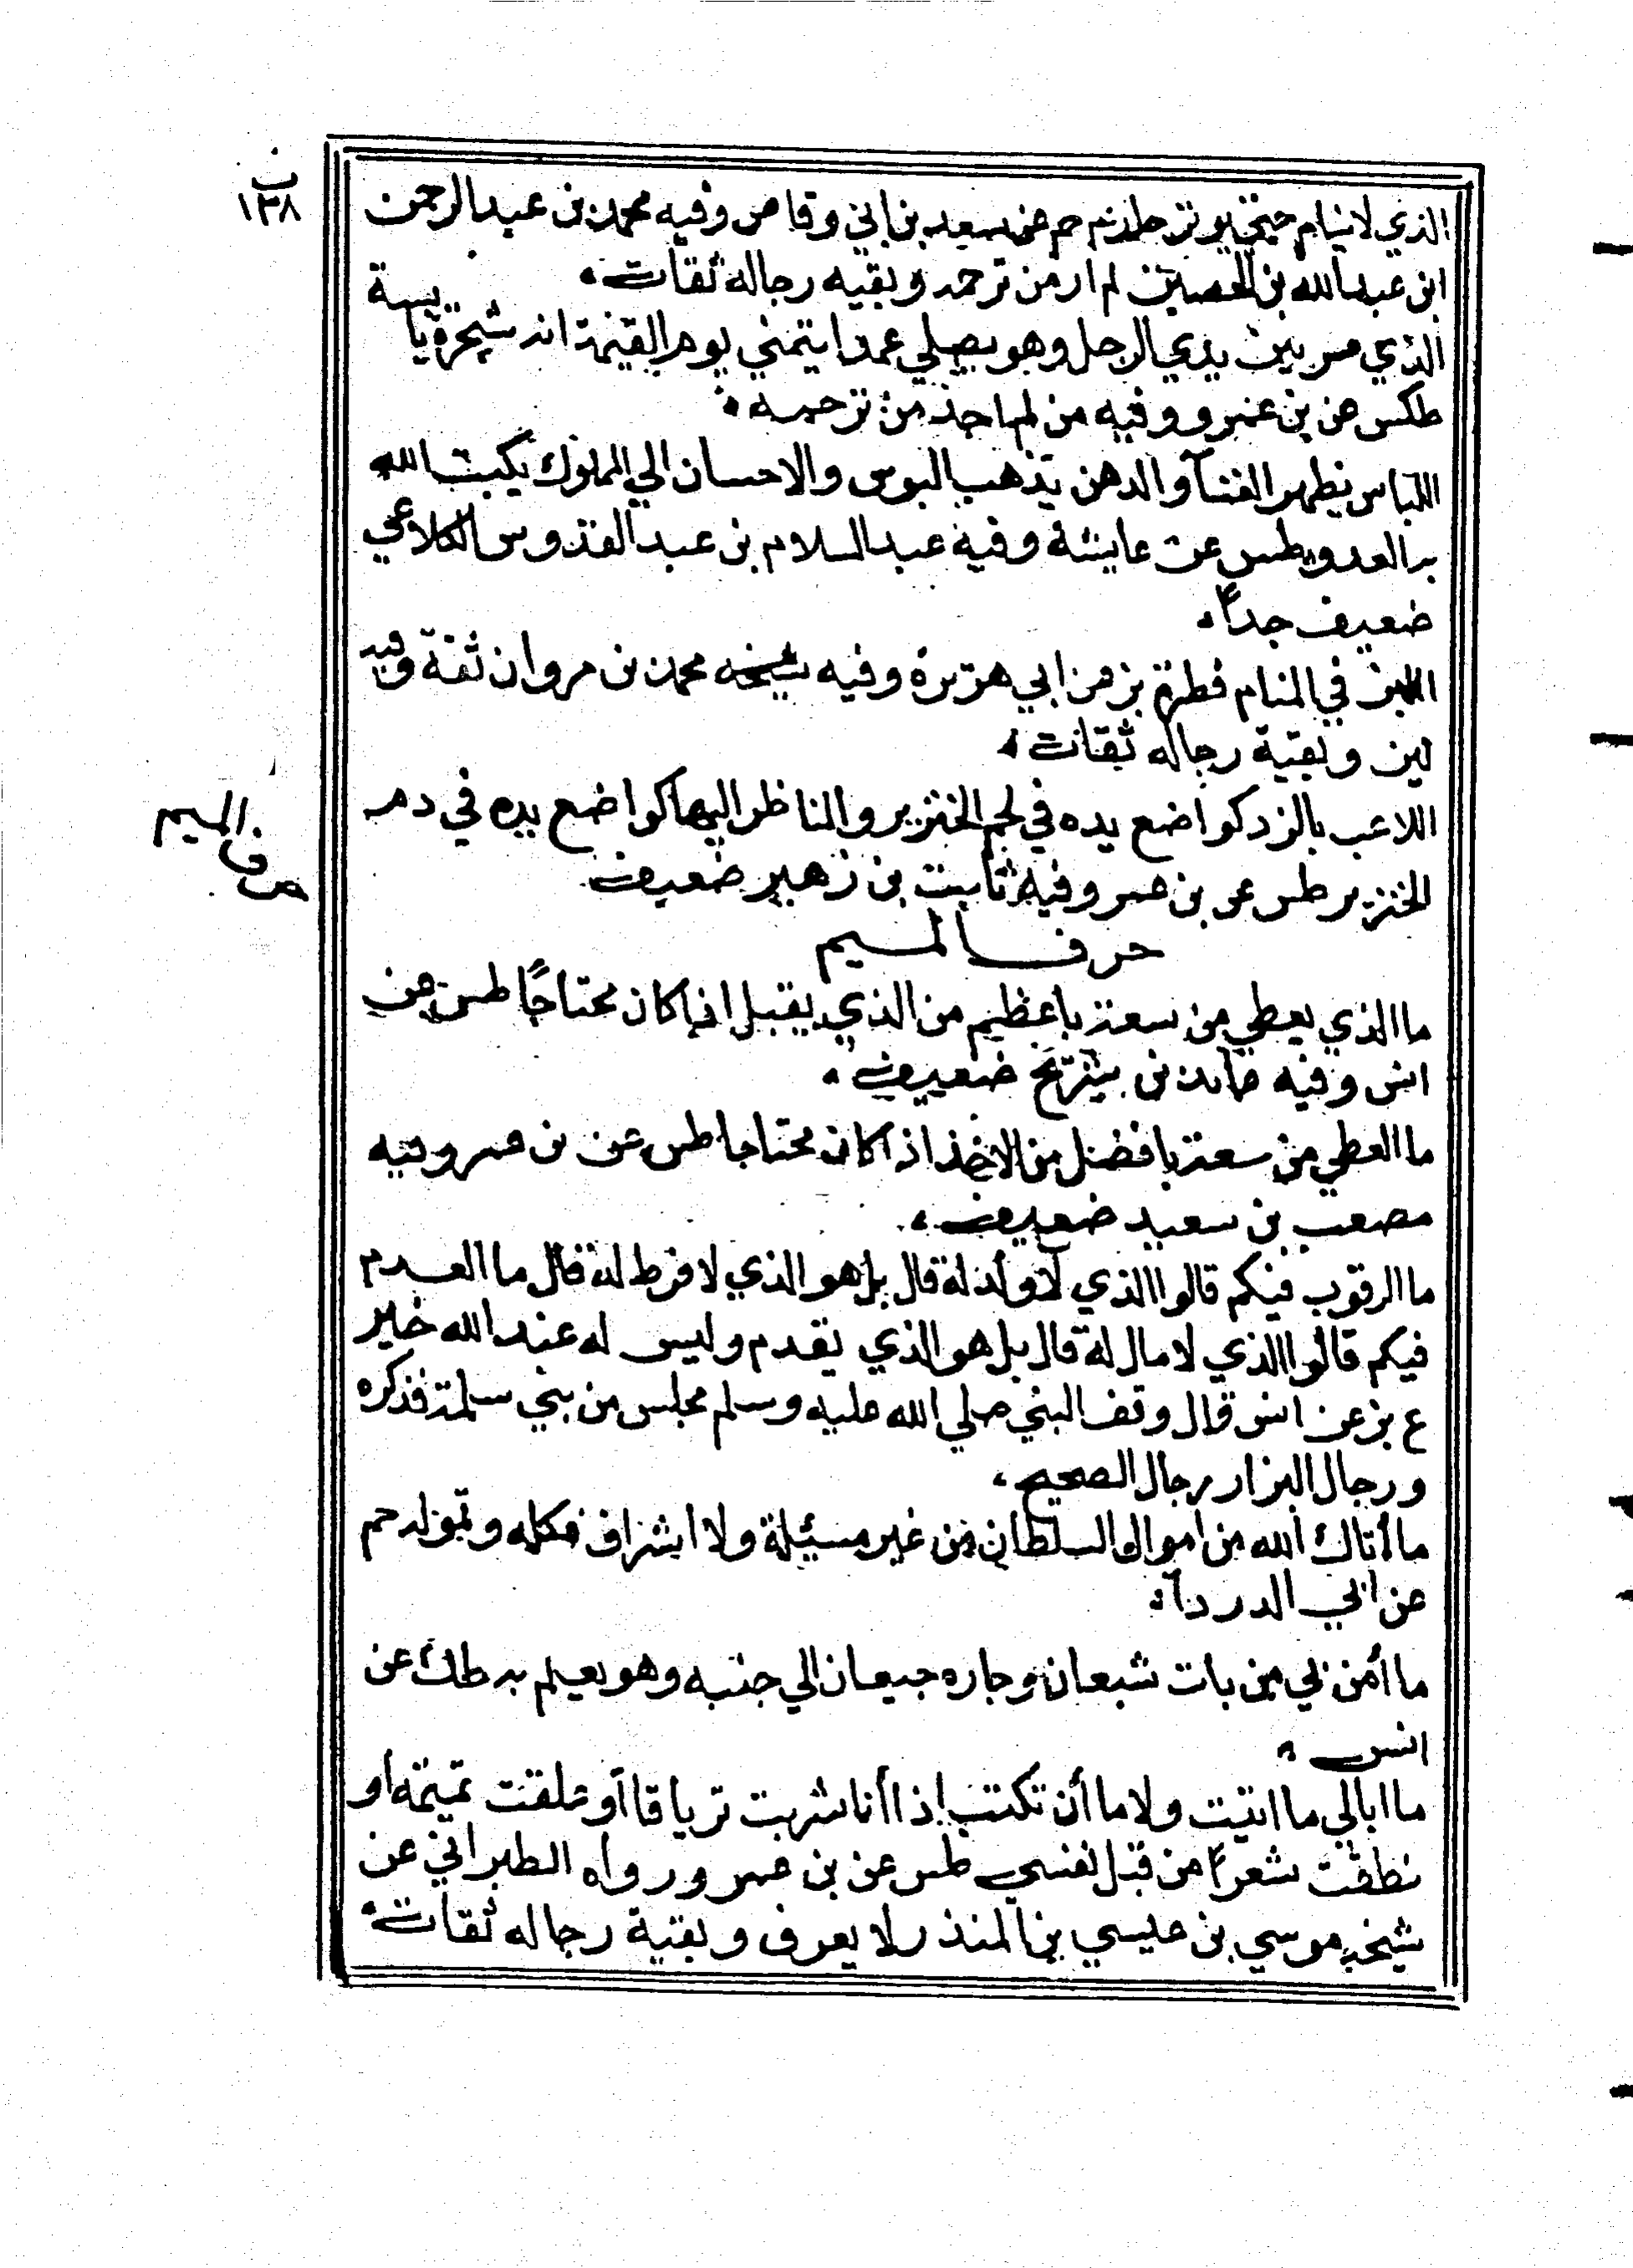 ب
١٣٨
الذي لا ينام حتي يوتر حازم حم عن سعد بن ابي وقاص وفيه محمد بن عبد الرحمن
ابن عبد الله بن الحصين لم ار من ترجمه وبقيه رجاله ثقات
الذي يمر بين يدي الرجل وهو يصلي عمدا يتمني يوم القيمة انه شجرة يابسة
طكس عن بن عمرو وفيه من لم اجد من ترجمه
اللباس يظهر الغنآ والدهن يذهب البوس والاحسان الي المملوك يكبت الله
به العدو طس عن عايشة وفيه عبد السلام بن عبد القدوس الكلاعي
ضعيف جداً
اللبن في المنام فطرة بز عن ابي هريرة وفيه شيخه محمد بن مروان ثقة وفيه
لين وبقية رجاله ثقات
اللاعب بالنرد كواضع يده في لحم الخنزير والناظر اليها كواضع يده في دم
الخنزير طس عن بن عمر وفيه ثابت بن زهير ضعيف
حرف الميم
حرف الميم
ما الذي يعطي من سعة باعظيم من الذي يقبل اذا كان محتاجًا طس عن
انس وفيه عايد بن شريح ضعيف
ما المعطي من سعة بافضل من الاخذ اذا كان محتاجا طس عن بن عمر وفيه
مصعب بن سعيد ضعيف
ما الرقوب فيكم قالوا الذي لا ولد له قال بل هو الذي لا فرط له قال ما العدم
فيكم قالوا الذي لا مال له قال بل هو الذي يقدم وليس له عند الله خير
ع بز عن انس قال وقف النبي صلي الله عليه وسلم مجلس من بني سلمة فذكره
ورجال البزار رجال الصحيح
ما أتاك الله من اموال السلطان من غير مسئلة ولا اشراف فكله وتموله حم
عن ابي الدردآ
ما أمن بي من بات شبعان وجاره جيعان الي جنبه وهو يعلم به طك عن
انس
ما ابالي ما اتيت ولا ما أن تكتب إذا أنا شربت ترياقا أو علقت تميمة أو
نطقت شعراً من قبل نفسي طس عن بن عمر ورواه الطبراني عن
شيخه موسي بن عيسي بن المنذر لا يعرف وبقية رجاله ثقات